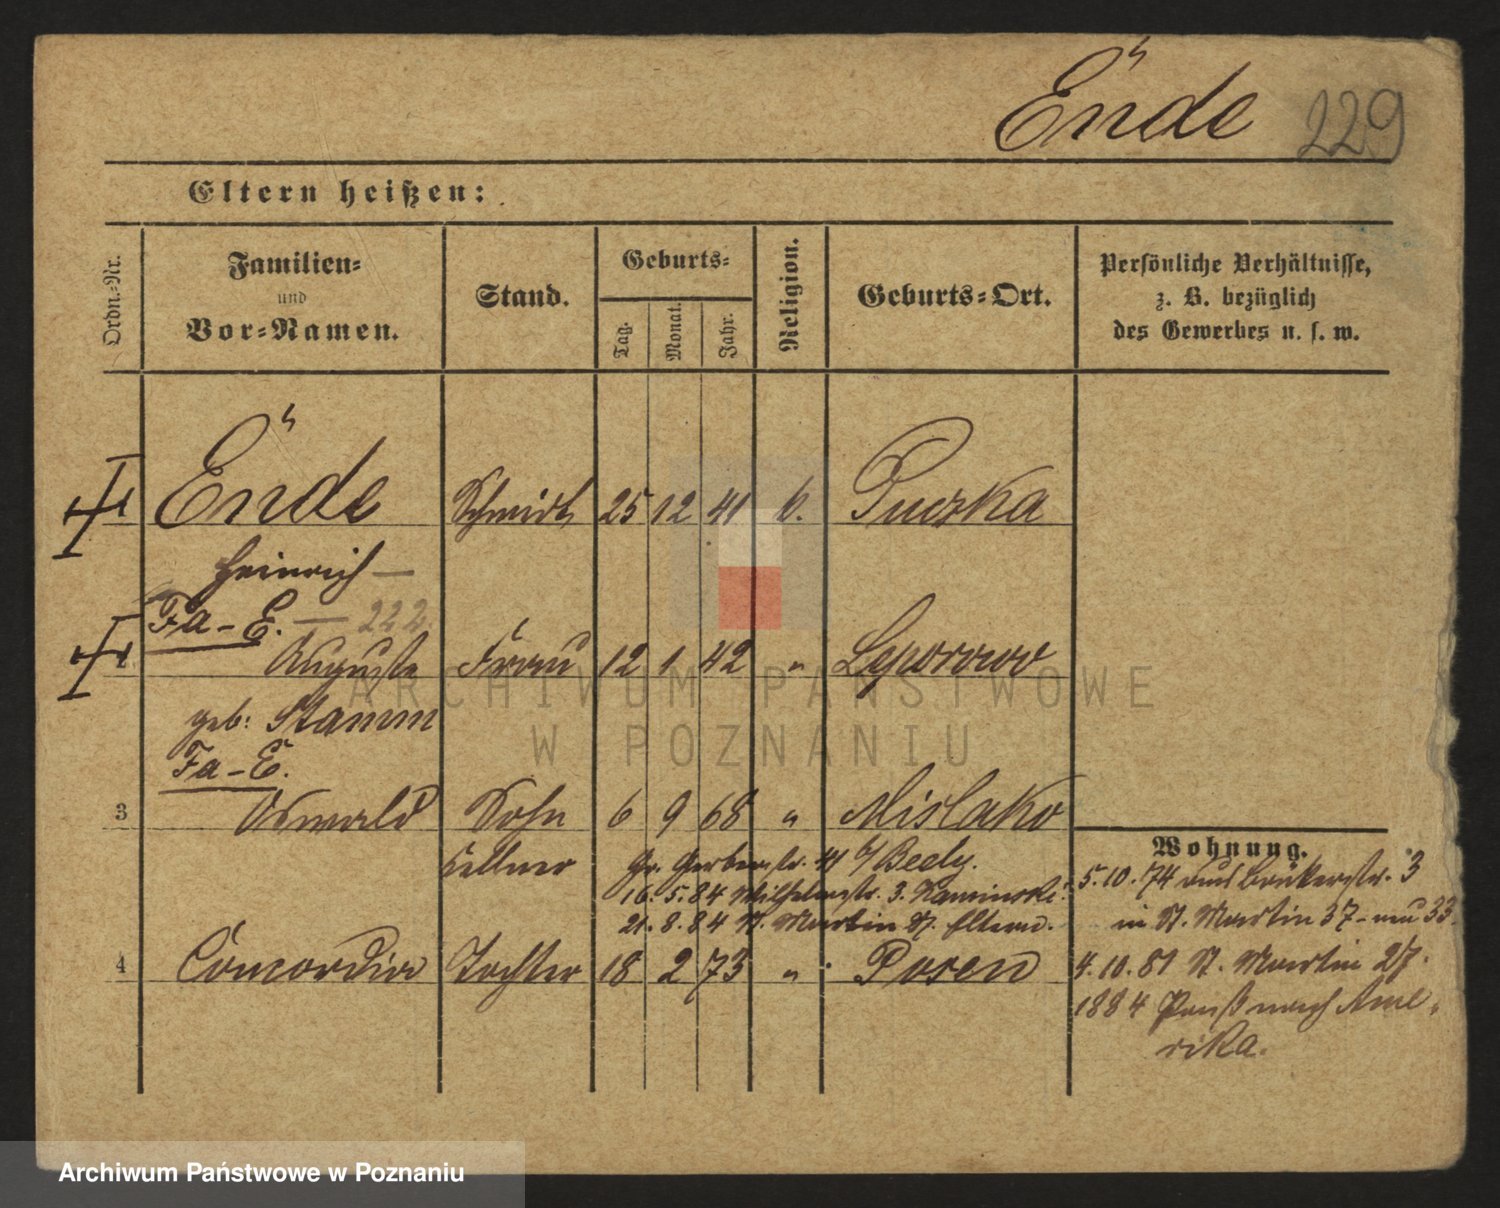 Ende 229
Eltern heißen:
Ordn.-Nr.
Familien-
und
Vor-Namen.
Stand.
Geburts-
Tag.
Monat.
Jahr.
Religion.
Geburts-Ort.
Persönliche Verhältnisse,
z. B. bezüglich
des Gewerbes u. s. w.
Ende Schmidt 25 12 41 Puszka
Heinrich —
Fa - E. — 222
Auguste Frau 12 1 42 "
geb: Stamm
Fa - E.
3 Oswald Sohn 6 9 68 " Mislako
Kellner Gr. Gerberstr. 41 b/ Beely.
16. 5. 84 Wilhelmstr. 3. Kaminski
21. 8. 84 St. Martin 27. Eltern.
4 Concordia Tochter 18 2 73 " Posen
Wohnung.
5. 10. 74 aus Bäckerstr. 3
in St. Martin 37 - neu 33.
4. 10. 81 St. Martin 27.
1884 Paß nach Ame-
rika.
ARCHIWUM PAŃSTWOWE
W POZNANIU
Archiwum Państwowe w Poznaniu